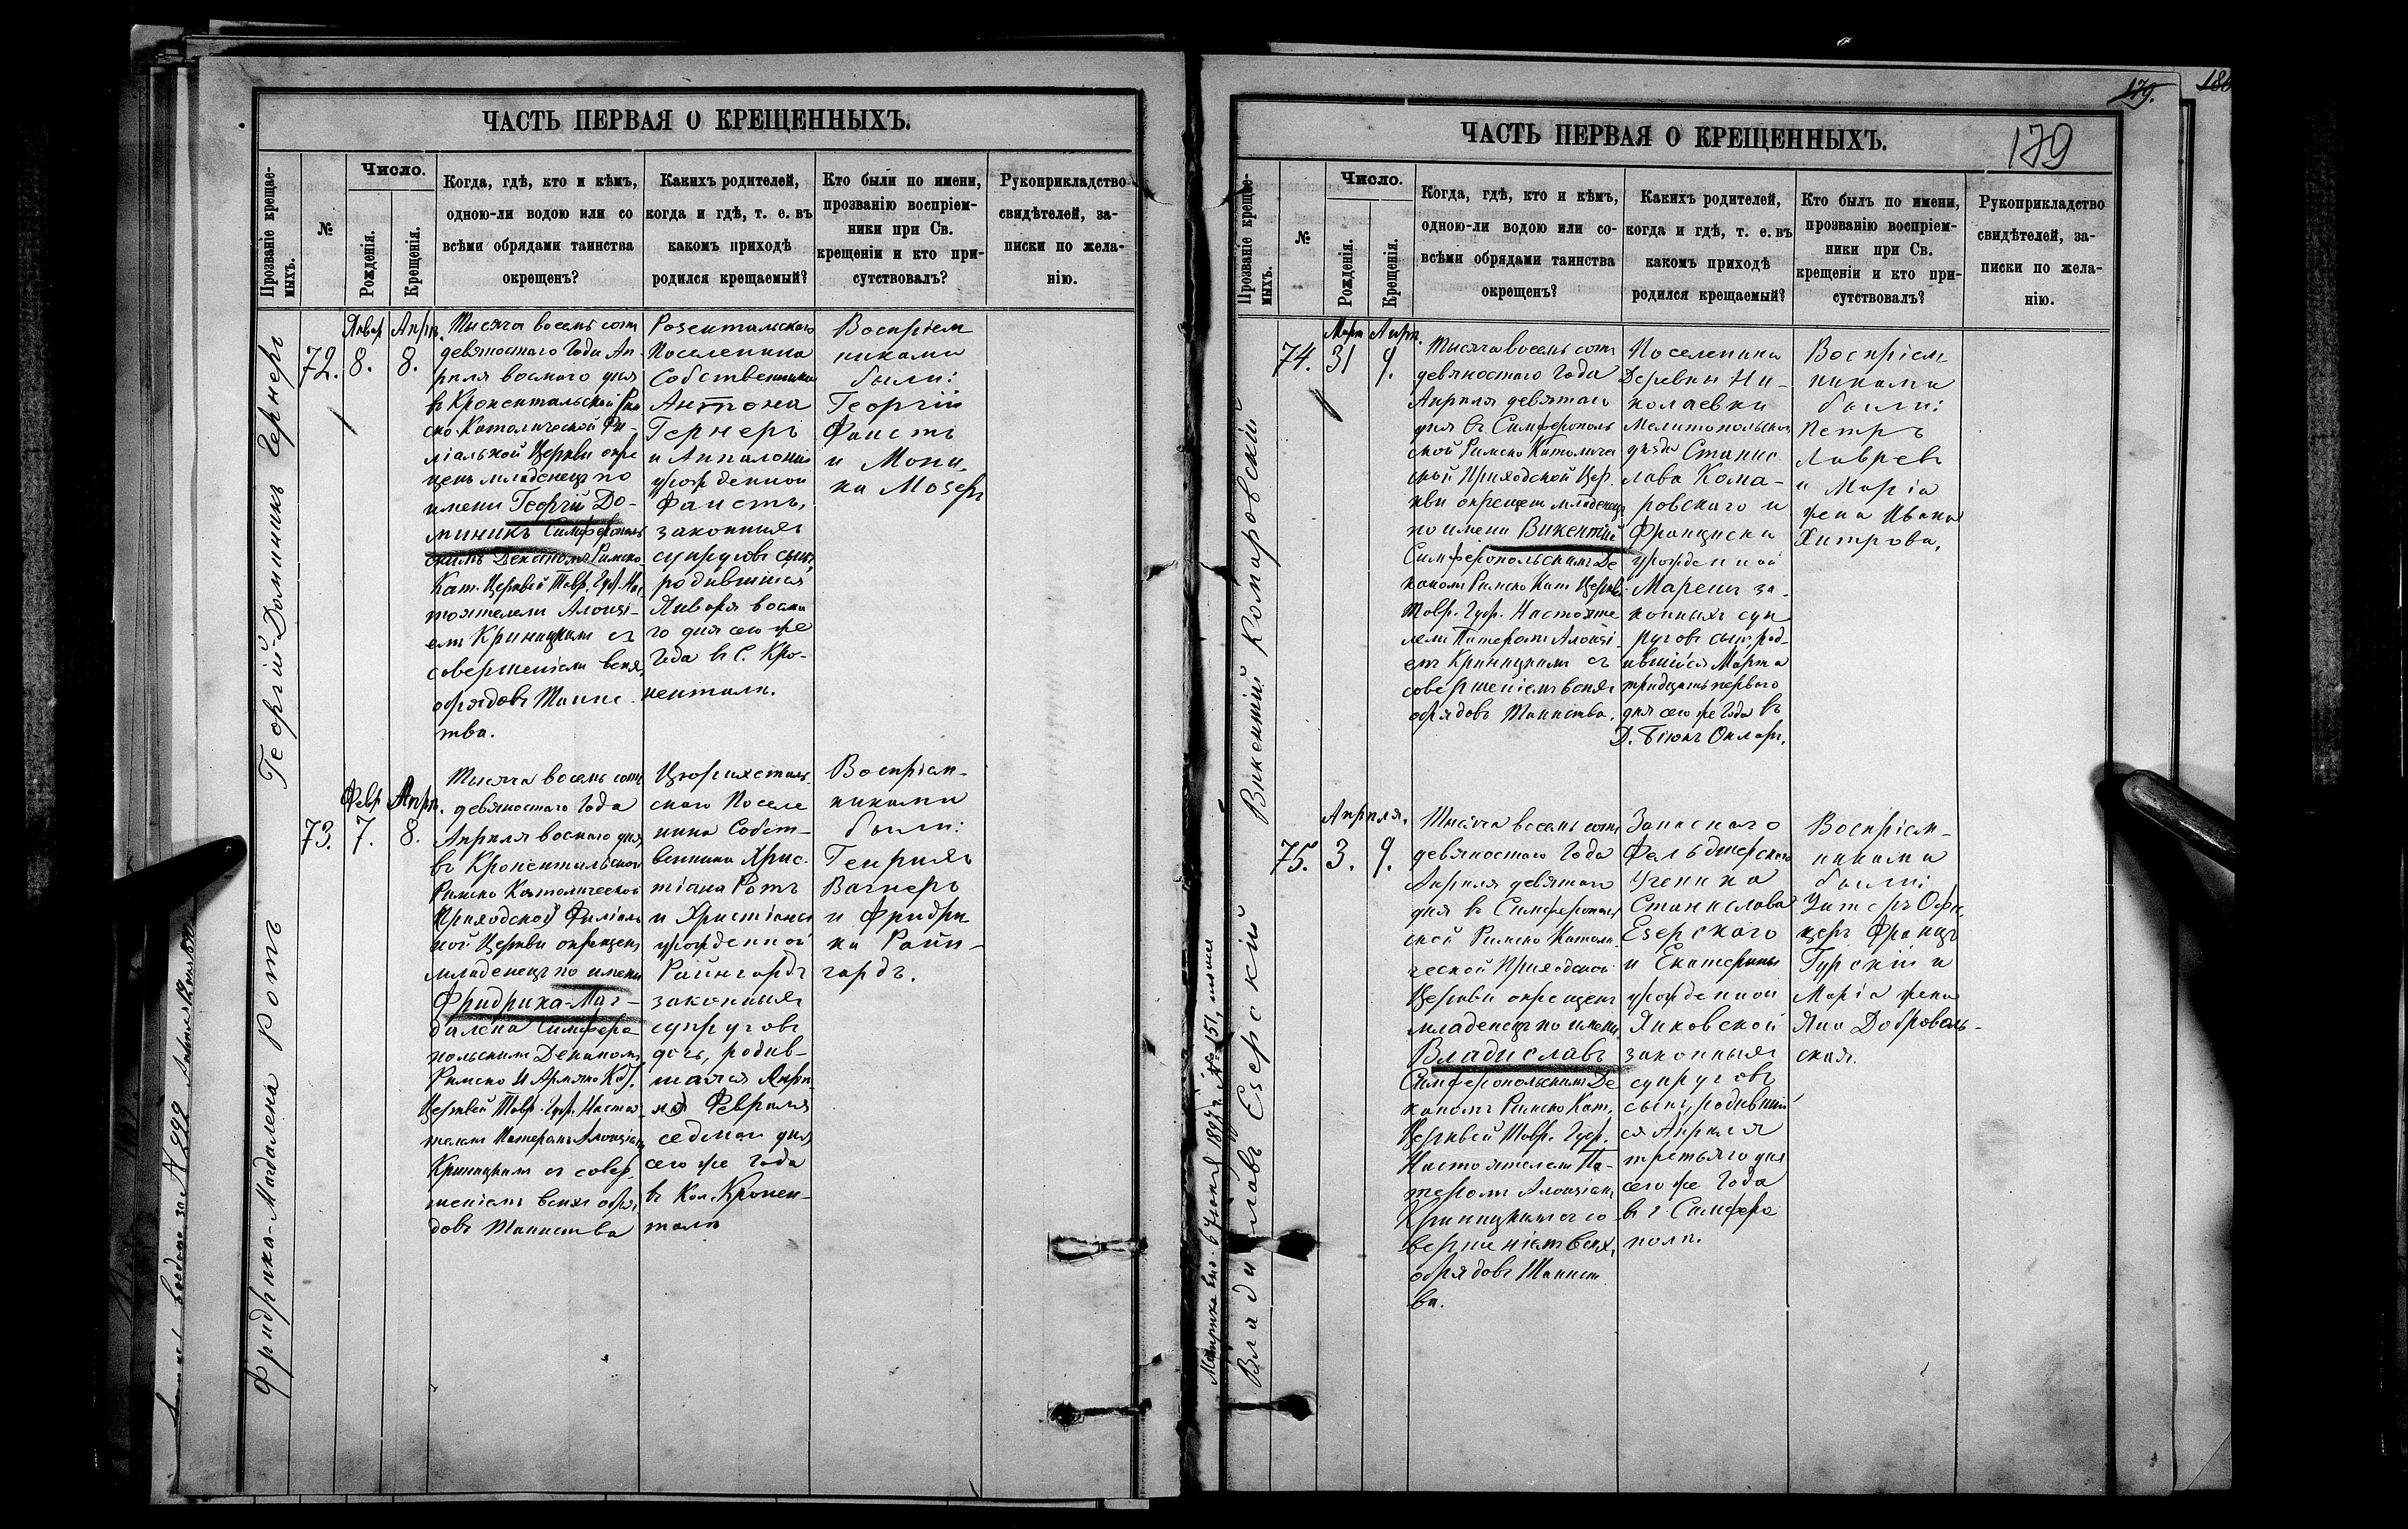 ЧАСТЬ ПЕРВАЯ О КРЕЩЕННЫХЪ.
Прозваніе крещае-
мыхъ.
№
Число.
Рожденія.
Крещенія.
Когда, гдѣ, кто и кѣмъ,
одною-ли водою или со
всѣми обрядами таинства
окрещенъ?
Какихъ родителей,
когда и гдѣ, т. е. въ
какомъ приходѣ
родился крещаемый?
Кто были по имени,
прозванію воспріем-
ники при Св.
крещеніи и кто при-
сутствовалъ?
Рукоприкладство
свидѣтелей, за-
писки по жела-
нію.
Георгій-Доминикъ Гернеръ
72.
Январ
8.
Апрп.
8.
Тысяча восемь сотъ
девяностаго Года Ап-
рѣля восмаго дня
въ Кронентальской Рим
ско Католической Фи-
ліальной Церкви окре
щенъ младенецъ по
имени Георгій До-
миникъ Симферополь
скимъ Деканомъ Римско
Кат. Церквей Тавр. Губ. Нас
тоятелемъ Алоизі-
емъ Криницкимъ съ
совершеніемъ всѣхъ
обрядовъ Таинс
тва.
Розентальскаго
Поселенина
Собственника
Антона
Гернеръ
и Апполоніи
урожденной
Фаистъ,
законныхъ
супруговъ сынъ,
родившійся
Января восма
го дня сего же
Года въ С. Кро-
ненталѣ.
Воспріем
никами
были:
Георгій
Фаистъ
и Мони-
ка Мозеръ
Фридрика-Магдалена Ротъ
73.
Февр
7.
Апрп.
8.
Тысяча восемь сотъ
девяностаго Года
Апрѣля восмаго дня
въ Кронентальской
Римско Католической
Приходской Филіаль
ной Церкви окрещенъ
младенецъ по имени
Фридрика-Маг-
далена Симферо
польскимъ Деканомъ
Римско и Армяно Каѳ.
Церквей Тавр. Губ. Настоя
телемъ Патеромъ Алоизіемъ
Криницкимъ съ совер
шеніемъ всѣхъ обря
довъ Таинства
Цюрихсталь
скаго Поселе
нина Собст-
венника Хрис-
тіана Ротъ
и Христіаны
урожденной
Райнгардъ
законныхъ
супруговъ
дочь, родив-
шаяся
Февраля
седмаго дня
сего же Года
въ Кол. Кронен-
талѣ
Воспріем-
никами
были:
Генрихъ
Вагнеръ
и Фридри
ка Райн-
гардъ.
ЧАСТЬ ПЕРВАЯ О КРЕЩЕННЫХЪ.
179.
179
Прозваніе крещае-
мыхъ.
№
Число.
Рожденія.
Крещенія.
Когда, гдѣ, кто и кѣмъ,
одною-ли водою или со-
всѣми обрядами таинства
окрещенъ?
Какихъ родителей,
когда и гдѣ, т. е. въ
какомъ приходѣ
родился крещаемый?
Кто былъ по имени,
прозванію воспріем-
ники при Св.
крещеніи и кто при-
сутствовалъ?
Рукоприкладство
свидѣтелей, за-
писки по жела-
нію.
Викентій Комаровскій
74.
Март
31
Апрп.
9.
Тысяча восемь сотъ
девяностаго Года
Апрѣля девятаго
дня въ Симферополь
ской Римско Католиче
ской Приходской Цер
кви окрещенъ младенецъ
по имени Викентій
Симферопольскимъ Де
каномъ Римско Кат Церкв
Тавр. Губ. Настояте
лемъ Патеромъ Алоизі
емъ Криницкимъ съ
совершеніемъ всѣхъ
обрядовъ Таинства.
Поселенина
Деревни Ни-
колаевки
Мелитопольскаго
уѣзда Станис
лава Кома-
ровскаго и
Франциски
урожденной
Марешъ за-
конныхъ суп
руговъ сынъ, род-
ившійся Марта
тридцать перваго
дня сего же Года въ
Д. Біюкъ Онларъ.
Воспріем
никами
были:
Петръ
Лавревъ
и Марія
жена Ивана
Хитрова.
Владиславъ Езерскій
Метрика выд. 6 Іюня № 151,
75.
Апрѣля.
3.
9.
Тысяча восемь сотъ
девяностаго Года
Апрѣля девятаго
дня въ Симферополь
ской Римско Катали
ческой Приходской
Церкви окрещенъ
младенецъ по имени
Владиславъ
Симферопольскимъ Де
каномъ Римско Кат.
Церквей Тавр. Губ.
Настоятелемъ Па-
теромъ Алоизіемъ
Криницкимъ съ со-
вершеніемъ всѣхъ
обрядовъ Таинст
ва.
Запаснаго
Фельдшерскаго
Ученика
Станислава
Езерскаго
и Екатерины
урожденной
Янковской
законныхъ
супруговъ
сынъ, родившій
ся Апрѣля
третьяго дня
сего же Года
въ г. Симферо
полѣ.
Воспріем-
никами
были:
Унтеръ Офи
церъ Францъ
Гурскій и
Марія жена
Яна Доброволь-
ская.